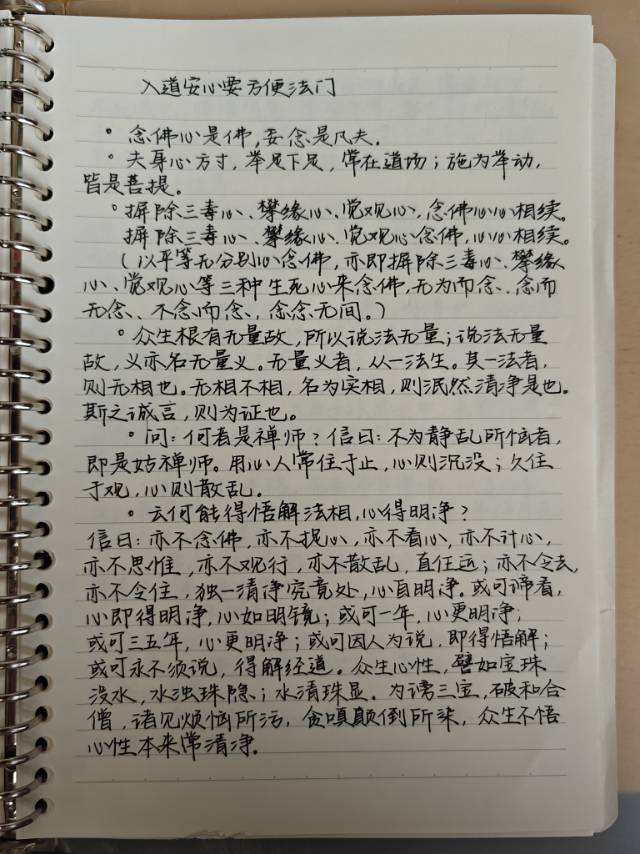 入道安心要方便法门
。念佛心是佛,妄念是凡夫.
。夫身心方寸,举足下足,常在道场;施为举动,
皆是菩提。
。摒除三毒心、攀缘心、觉观心,念佛心心相续。
摒除三毒心、攀缘心、觉观心念佛,心心相续。
(以平等无分别心念佛,亦即摒除三毒心、攀缘
心、觉观心等三种生死心来念佛,无为而念、念而
无念、不念而念、念念无间。)
。众生根有无量故,所以说法无量;说法无量
故,义亦名无量义。无量义者,从一法生。其一法者,
则无相也。无相不相,名为实相,则泯然清净是也.
斯之诚言,则为证也。
。问:何者是禅师?信曰:不为静乱所恼者,
即是好禅师。用心人常住于止,心则沉没;久住
于观,心则散乱。
。云何能得悟解法相,心得明净?
信曰:亦不念佛,亦不捉心,亦不看心,亦不计心,
亦不思惟,亦不观行,亦不散乱,直任运;亦不令去,
亦不令住,独一清净究竟处,心自明净.或可谛看,
心即得明净,心如明镜;或可一年,心更明净;
或可三五年,心更明净;或可因人为说,即得悟解;
或可永不须说,得解经道。众生心性,譬如宝珠
没水,水浊珠隐;水清珠显.为谤三宝,破和合
僧,诸见烦恼所污,贪嗔颠倒所染,众生不悟
心性本来常清净.